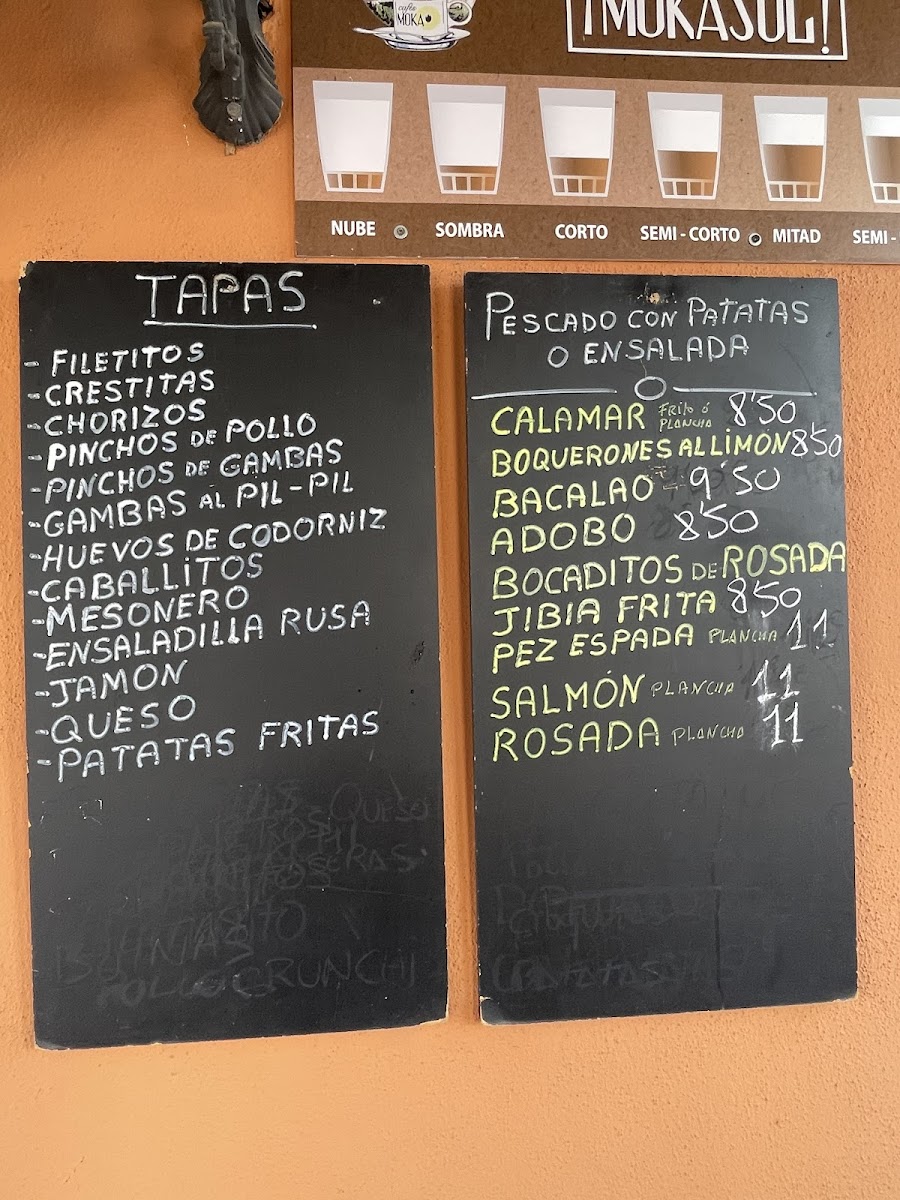 cafés
MOKA
¡MOKASOL!
NUBE
SOMBRA
CORTO
SEMI - CORTO
MITAD
SEMI -
TAPAS
- FILETITOS
- CRESTITAS
- CHORIZOS
- PINCHOS DE POLLO
- PINCHOS DE GAMBAS
- GAMBAS AL PIL-PIL
- HUEVOS DE CODORNIZ
- CABALLITOS
- MESONERO
- ENSALADILLA RUSA
- JAMON
- QUESO
- PATATAS FRITAS
QUESO
POLLO CRUNCHI
PESCADO CON PATATAS
O ENSALADA
CALAMAR FRITO Ó PLANCHA 8'50
BOQUERONES AL LIMÓN 8'50
BACALAO - 9'50
ADOBO 8'50
BOCADITOS DE ROSADA
JIBIA FRITA 8'50
PEZ ESPADA PLANCHA 11
SALMÓN PLANCHA 11
ROSADA PLANCHA 11